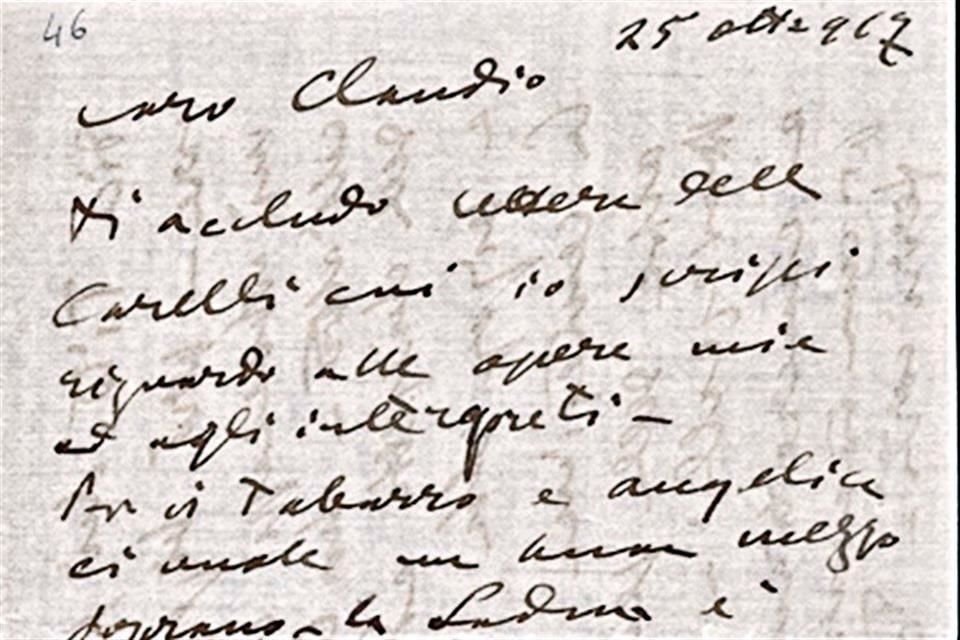 46
25 ott e 917
caro Claudio
Ti accludo lettera della
Carelli cui io scrissi
riguardo alle opere mie
ed agli interpreti —
Per il Tabarro e angelica
ci vuole un buon mezzo
soprano – la è